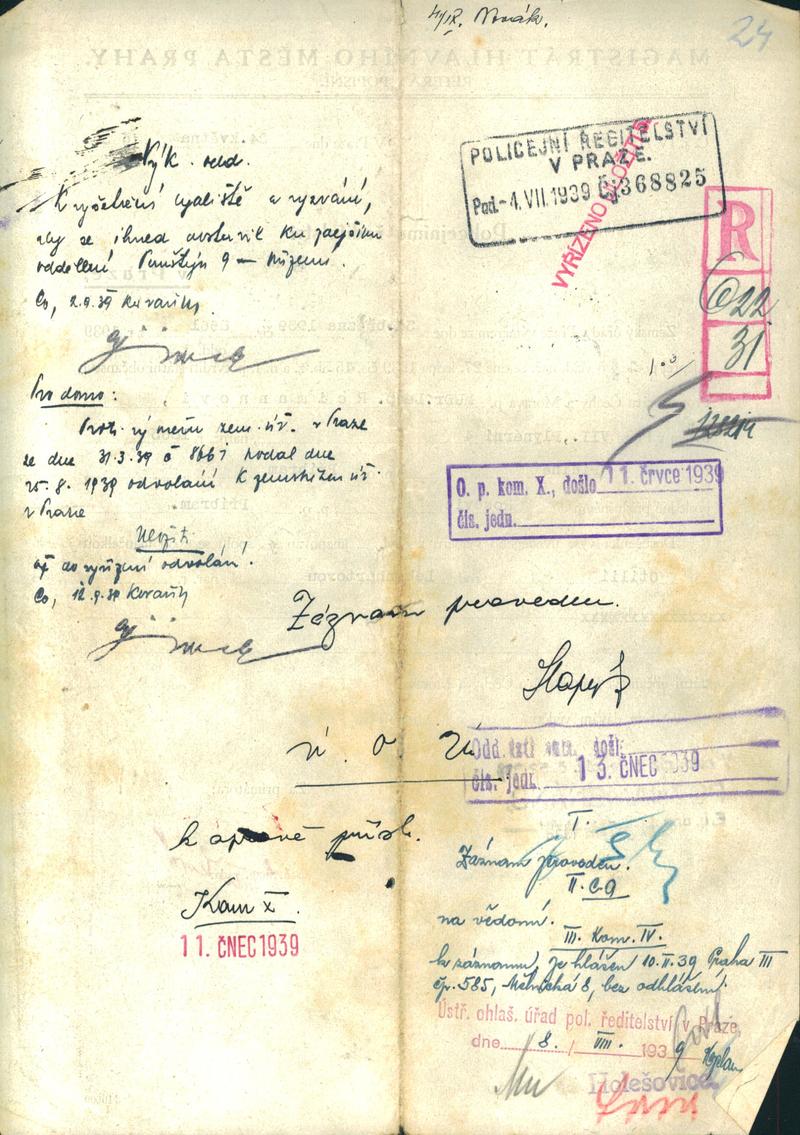 4/IX. Novák.
24
POLICEJNÍ ŘEDITELSTVÍ
V PRAZE.
Pod. -4. VII. 1939 Čj 368825
VYŘÍZENO ULOŽITI
R
622
31
Výk. odd.
K vyšetření bydliště a vyzvání,
aby se ihned dostavil ku zdejšímu
oddělení Perštýn 9 —
Co, 2.9.39
Pro domo:
Proti výměru zem. úř. v Praze
ze dne 31.3.39 č 8661 podal dne
25.8. 1939 odvolání k zemskému úř.
v Praze
Uložit
až do vyřízení odvolání.
Co, 12.9.39
O. p. kom. X., došlo 11. črvce 1939
čís. jedn.
Záznam proveden.
Odd. došlo
čís. jedn. 13. ČNEC 1939
k opravě přísl.
Kom X.
11. ČNEC 1939
I.
Záznam proveden.
II. C9
na vědomí.
III. Kom. IV.
k záznamu, je hlášen 10.II.39 Praha III
čp. 585, Mělnická 8, bez odhlášení.
Ústř. ohlaš. úřad pol. ředitelství v Praze,
dne 8. / VIII. 1939
Holešovice